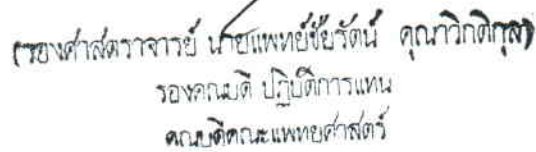 (รองศาสตราจารย์ นายแพทย์ชัยรัตน์ คุณาวิกติกุล)
รองคณบดี ปฏิบัติการแทน
คณบดีคณะแพทยศาสตร์